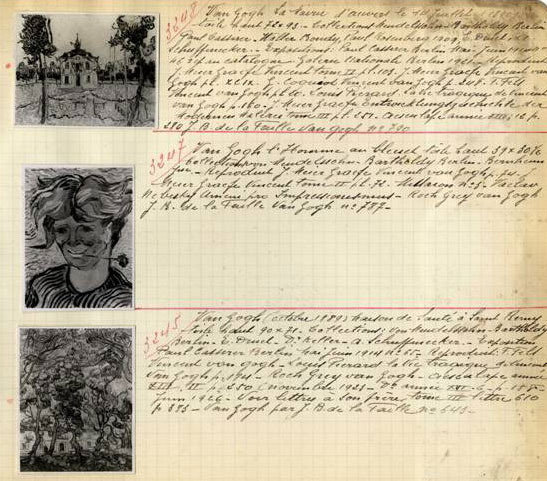 3248
Van Gogh La Mairie d'Auvers le 14 Juillet
toile haut 72 x 93 - Collections Mendelssohn Bartholdy Berlin
Paul Cassirer - Keller Bondy Paul Rosenberg E. Druet
Schuffenecker - Expositions: Paul Cassirer Berlin Mai Juin
catalogue Galerie Nationale Berlin 1921 - reproductions
J. Meier Graefe Vincent Tome II pl. 103 - J. Meier Graefe Vincent van
Gogh pl. - G. Coquiot Vincent van Gogh p. - F. Fels
Vincent van Gogh p. 60 - Louis Piérard La Vie tragique de Vincent
van Gogh p. 160 - J. Meier Graefe Entwicklungsgeschichte der
Modernen tome III pl. 251 - Aesculape année XIII p.
280 J. B. de la Faille Van Gogh n° 790
3247
Van Gogh l'Homme au bleuet toile haut 39 x 30½
Collections von Mendelssohn - Bartholdy Berlin - Bernheim
Jne - Reproduct J. Meier Graefe Vincent van Gogh p.
Meier Graefe Vincent Tome II pl. 72 - n° 3 - Vaclav
Nebesky Umeni pro Impressionismus - Roch Grey van Gogh
J. B. de la Faille Van Gogh n° 787 -
3245
Van Gogh (octobre 1889) Maison de Santé à Saint Remy
toile haut 90 x 71 - Collections: von Mendelssohn - Bartholdy
Berlin - E. Druet - D. Keller - A. Schuffenecker - Exposition
Paul Cassirer Berlin Mai Juin 1914 n° 65 - Reproduct: F. Fels
Vincent van Gogh - Louis Piérard La Vie tragique de Vincent
Van Gogh p. - Roch Grey van Gogh - Aesculape année
p. 250 (Novembre 1923 - D° année XVI - 6 - p. 155 -
Juin 1926 - Voir lettres à son frère, tome III lettre 610
p 385 - Van Gogh par J. B. de la Faille n° 643 -